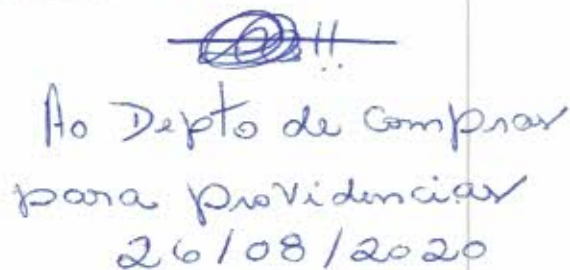 !!
Ao Depto de Compras
para providencias
26/08/2020